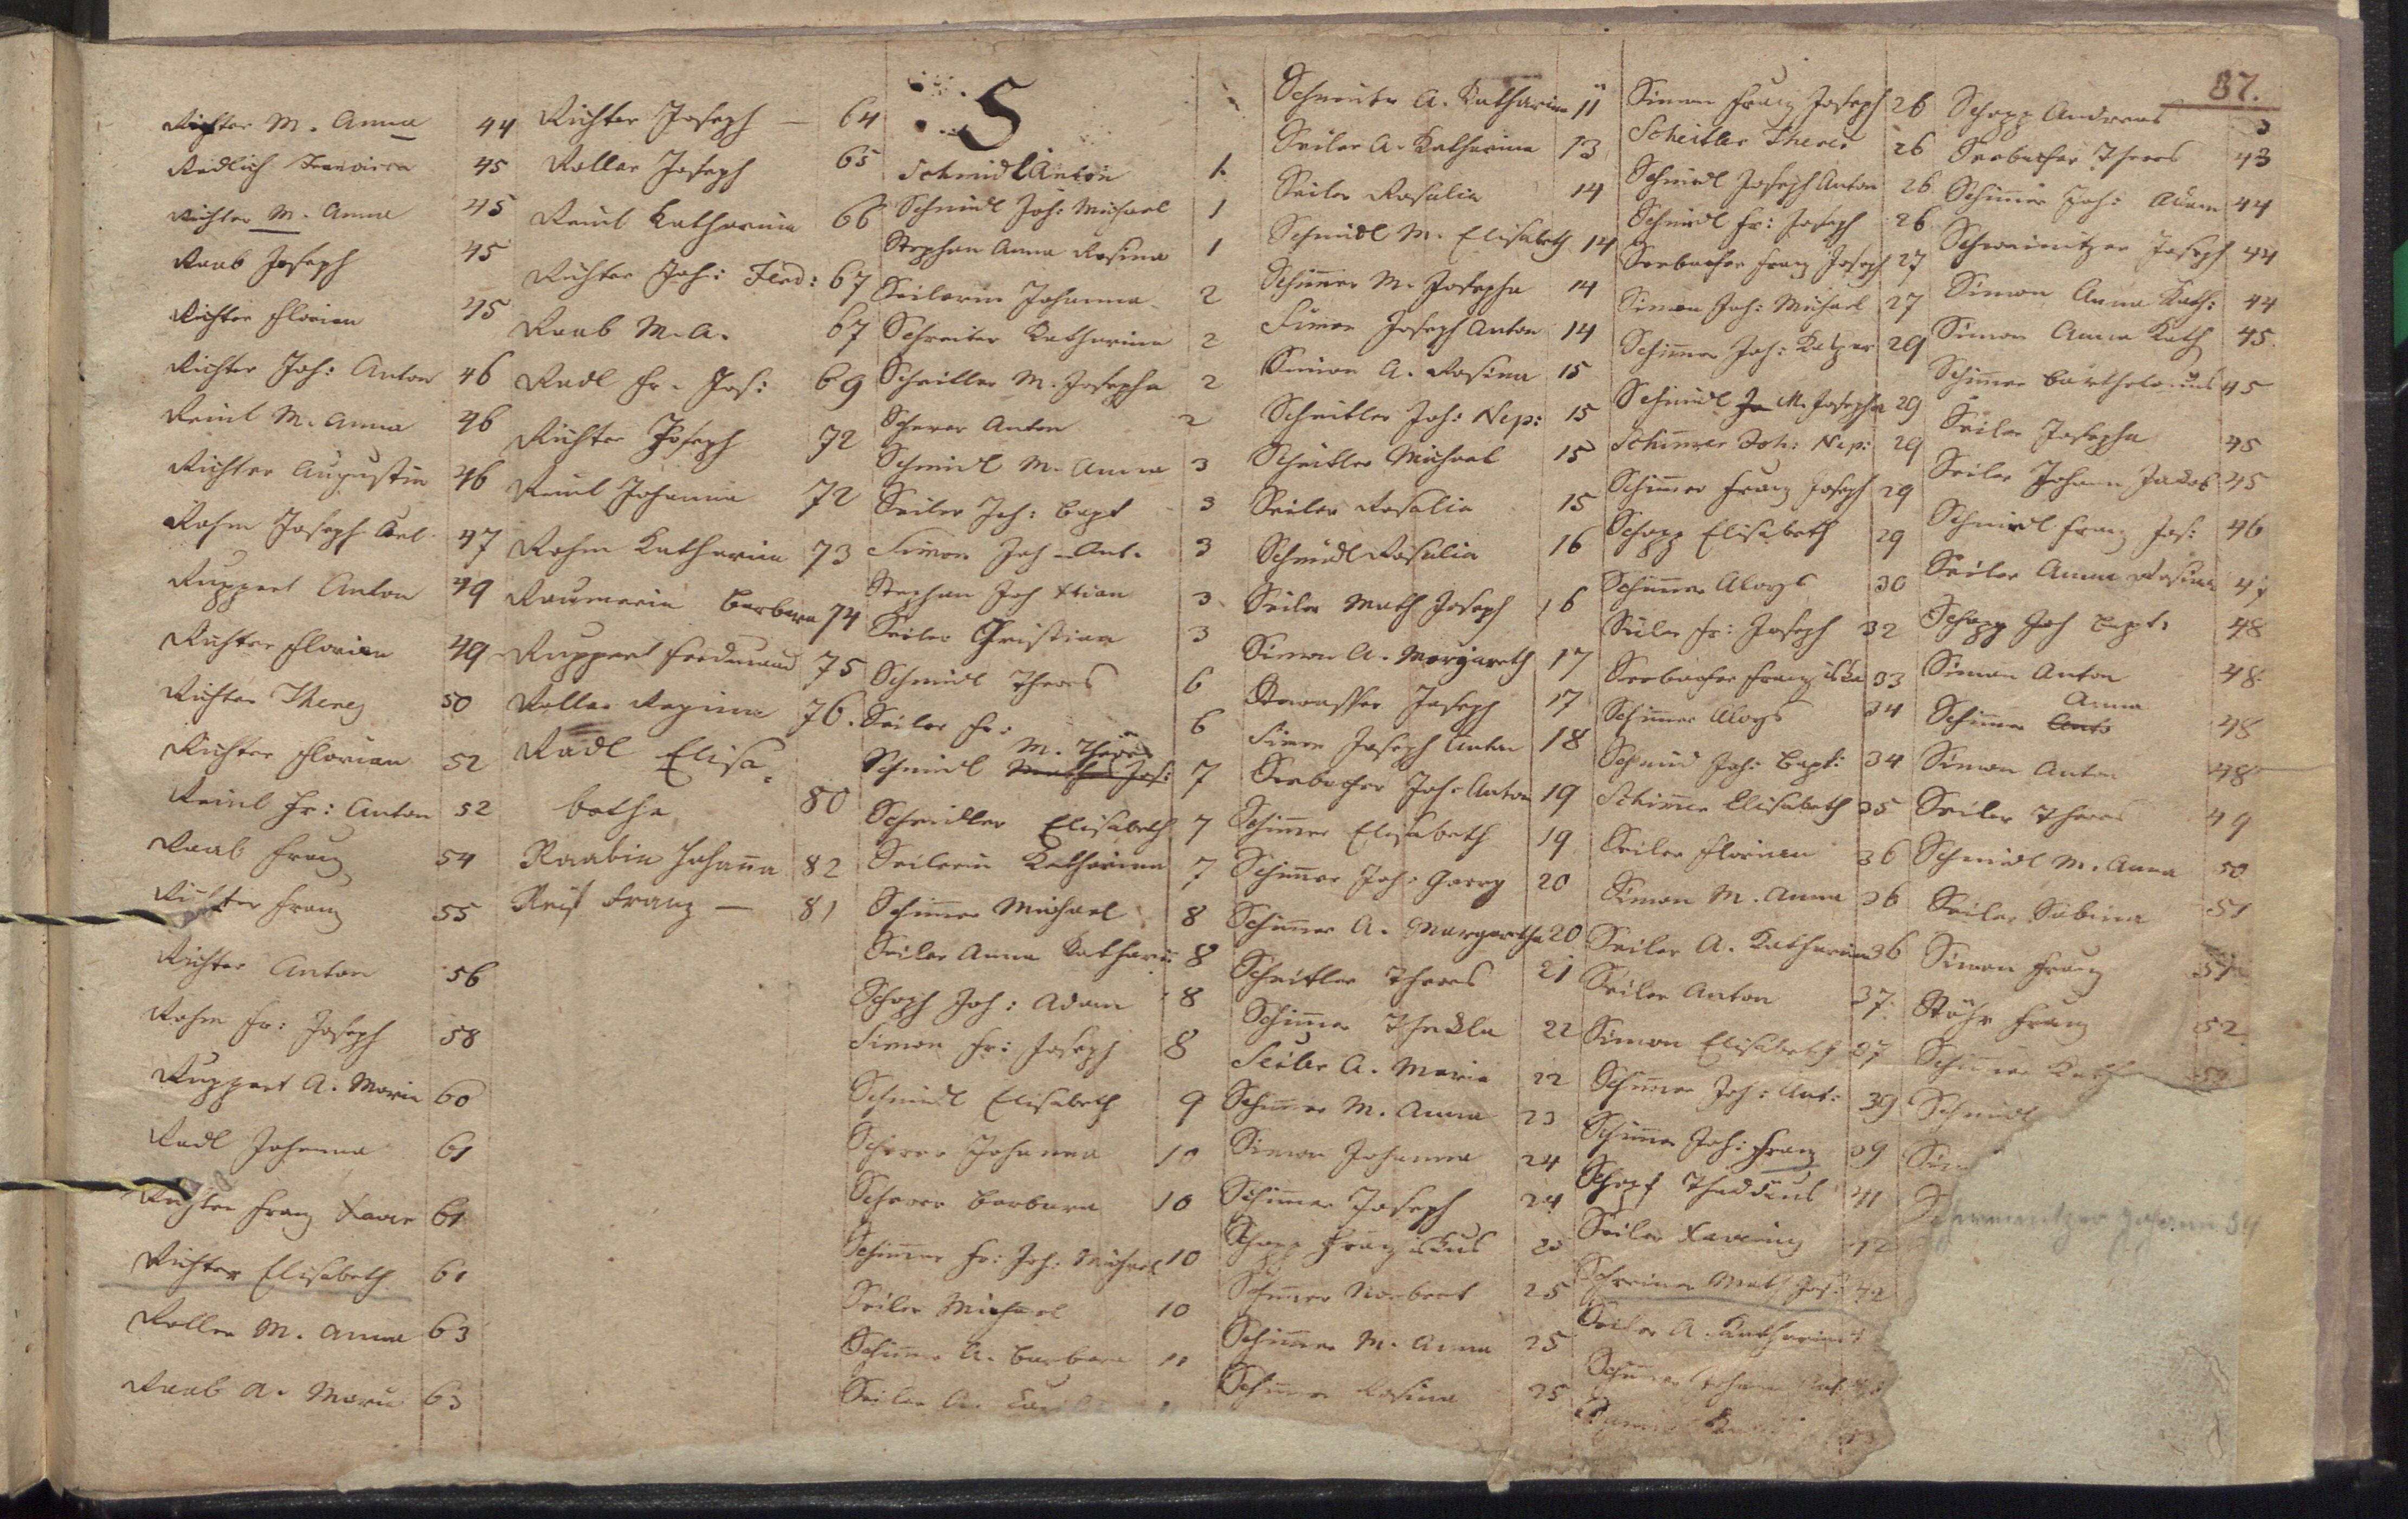 87.
Richter M. Anna 44
Redlich Francisca 45
Richter M. Anna 45
Raab Joseph 45
Richter Florian 45
Richter Joh: Anton 46
Reinl M. Anna 46
Richter Augustin 46
Rahm Joseph 47
Ruppert Anton 49
Richter Florian 49
Richter Theres 50
Richter Florian 52
Reinl Fr: Anton 52
Raab Franz 54
Richter Franz 55
Richter Anton 56
Rahm Fr: Joseph 58
Ruppert A. Maria 60
Radl Johanna 61
Richter Franz Xaver 61
Richter Elisabeth 61
Roller M. Anna 63
Raab A. Maria 63
Richter Joseph — 64
Roller Joseph 65
Reinl Katharina 66
Richter Joh: Ferd: 67
Raab M. A. 67
Radl Fr. Jos: 69
Richter Joseph 72
Reinl Johanna 72
Rahm Katharina 73
Raumerin Barbara 74
Ruppert Ferdinand 75
Roller Regina 76.
Radl Elisa-
betha 80
Raabin Johaña 82
Reis Franz — 81
S
Schmidl Anton 1.
Schmidl Joh: Michael 1
Stephan Anna Rosina 1
Seilerin Johanna 2
Schreiter Katharina 2
Scheitler M. Josepha 2
Scherer Anton 2
Schmidl M. Anna 3
Seiler Joh: Bapt 3
Simon Joh. Ant. 3
Stephan Joh Xtian 3
Seiler Christian 3
Schmidl Theres 6
Seiler Fr: 6
M. Theres
Schmidl Jos: 7
Scheidler Elisabeth 7
Seilerin Katharina 7
Schim̄er Michael 8
Seiler Anna Katharin 8
Schoph Joh: Adam 8
Simon Fr: Joseph 8
Schmidl Elisabeth 9
Scherer Johanna 10
Scherer Barbara 10
Schim̄er Fr: Joh: Michael 10
Seiler Michael 10
Schim̄er A. Barbara 11
Seiler A.
Schreiter A. Katharina 11
Seiler A. Katharina 13
Seiler Rosalia 14
Schmidl M. Elisabeth 14
Schim̄er M. Josepha 14
Simon Joseph Anton 14
Simon A. Rosina 15
Scheitler Joh: Nep: 15
Scheitler Michael 15
Seiler Rosalia 15
Schmidl Rosalia 16
Seiler Math Joseph 16
Simon A. Margareth 17
Joseph 17
Simon Joseph Anton 18
Seebacher Joh: Anton 19
Schim̄er Elisabeth 19
Schim̄er Joh: Georg 20
Schim̄er A. Margaretha 20
Scheitler Theres 21
Schim̄er Thekla 22
Seiler A. Maria 22
Schim̄er M. Anna 23
Simon Johanna 24
Schim̄er Joseph 24
Schopp Franziskus 25
Schim̄er Norbert 25
Schim̄er M. Anna 25
Schim̄er Rosina 25
Simon Franz Joseph 26
Scheitler Theres 26
Schmidl Joseph Anton 26
Schmidl Fr: Joseph 26
Seebacher Franz Joseph 27
Simon Joh: Michael 27
Schim̄er Joh: Kasper 29
Schmidl Jo M. Josepha 29
Schim̄er Joh: Nep: 29
Schim̄er Franz Joseph 29
Schopp Elisabeth 29
Schim̄er Aloys 30
Seiler Fr: Joseph 32
Seebacher Franziska 33
Schim̄er Aloys 34
Schmid Joh: Bapt: 34
Schim̄er Elisabeth 35
Seiler Florian 36
Simon M. Anna 36
Seiler A. Katharina 36
Seiler Anton 37.
Simon Elisabeth 37
Schim̄er Joh: Ant: 39
Schim̄er Joh: Franz 39
Schopf Thaddäus 41
Seiler Xaverius 42
Schreiner Math Jos: 42
Seiler A. Katharina
Schim̄er
Schopp Andreas
Seebacher Theres 43
Schim̄er Joh: Adam 44
Schreinitzer Joseph 44
Simon Anna Kath: 44
Simon Anna Kath 45.
Schim̄er Bartholomäus 45
Seiler Josepha 45
Seiler Johann Jakob 45
Schmidl Franz Jos: 46
Seiler Anna Rosina 47
Schopp Joh Bapt: 48
Simon Anton 48
Anna
Schim̄er Anto 48
Simon Anton 48
Seiler Theres 49
Schmidl M. Anna 50
Seiler Sabina 51
Simon Franz 51
Stöhr Franz 52
Schim̄er Kath
Schmidl
Sim